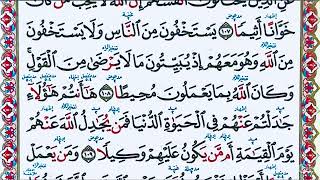 عَنِ الَّذِينَ يَخْتَانُونَ أَنفُسَهُمْ إِنَّ اللَّهَ لَا يُحِبُّ مَن كَانَ
خَوَّانًا أَثِيمًا ١٠٧ يَسْتَخْفُونَ مِنَ النَّاسِ وَلَا يَسْتَخْفُونَ
مِنَ اللَّهِ وَهُوَ مَعَهُمْ إِذْ يُبَيِّتُونَ مَا لَا يَرْضَىٰ مِنَ الْقَوْلِ
وَكَانَ اللَّهُ بِمَا يَعْمَلُونَ مُحِيطًا ١٠٨ هَٰأَنتُمْ هَٰؤُلَاءِ
جَٰدَلْتُمْ عَنْهُمْ فِي الْحَيَوٰةِ الدُّنْيَا فَمَن يُجَٰدِلُ اللَّهَ عَنْهُمْ
يَوْمَ الْقِيَٰمَةِ أَم مَّن يَكُونُ عَلَيْهِمْ وَكِيلًا ١٠٩ وَمَن يَعْمَلْ